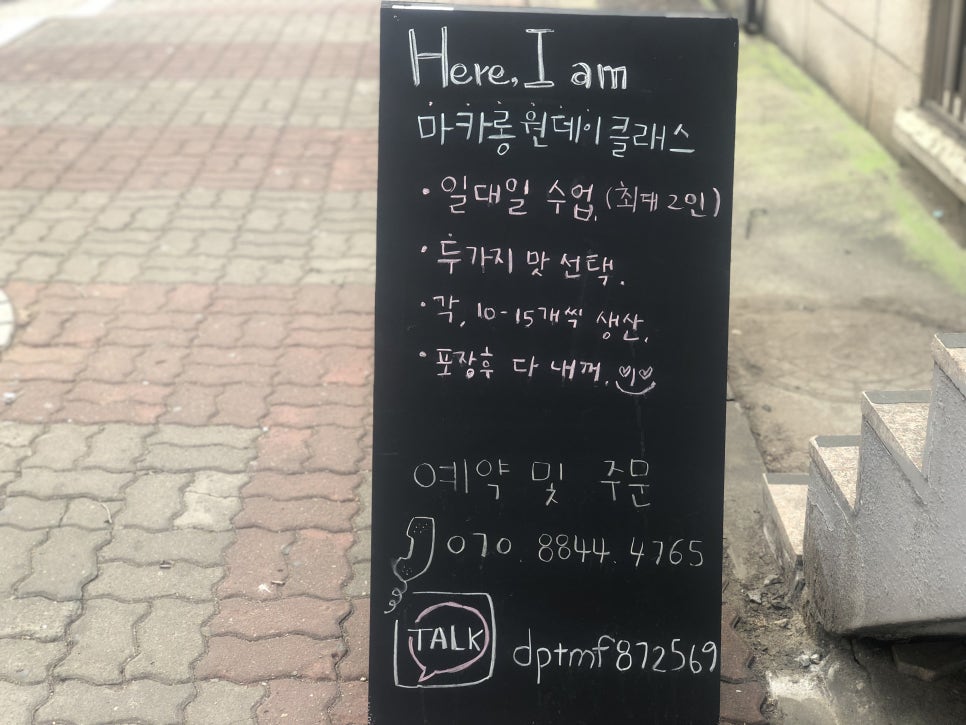 Here, I am
마카롱 원데이 클래스
· 일대일 수업. (최대 2인)
· 두가지 맛 선택.
· 각, 10-15개씩 생산.
· 포장후 다 내꺼.
예약 및 주문
070. 8844. 4765
TALK dptmf872569